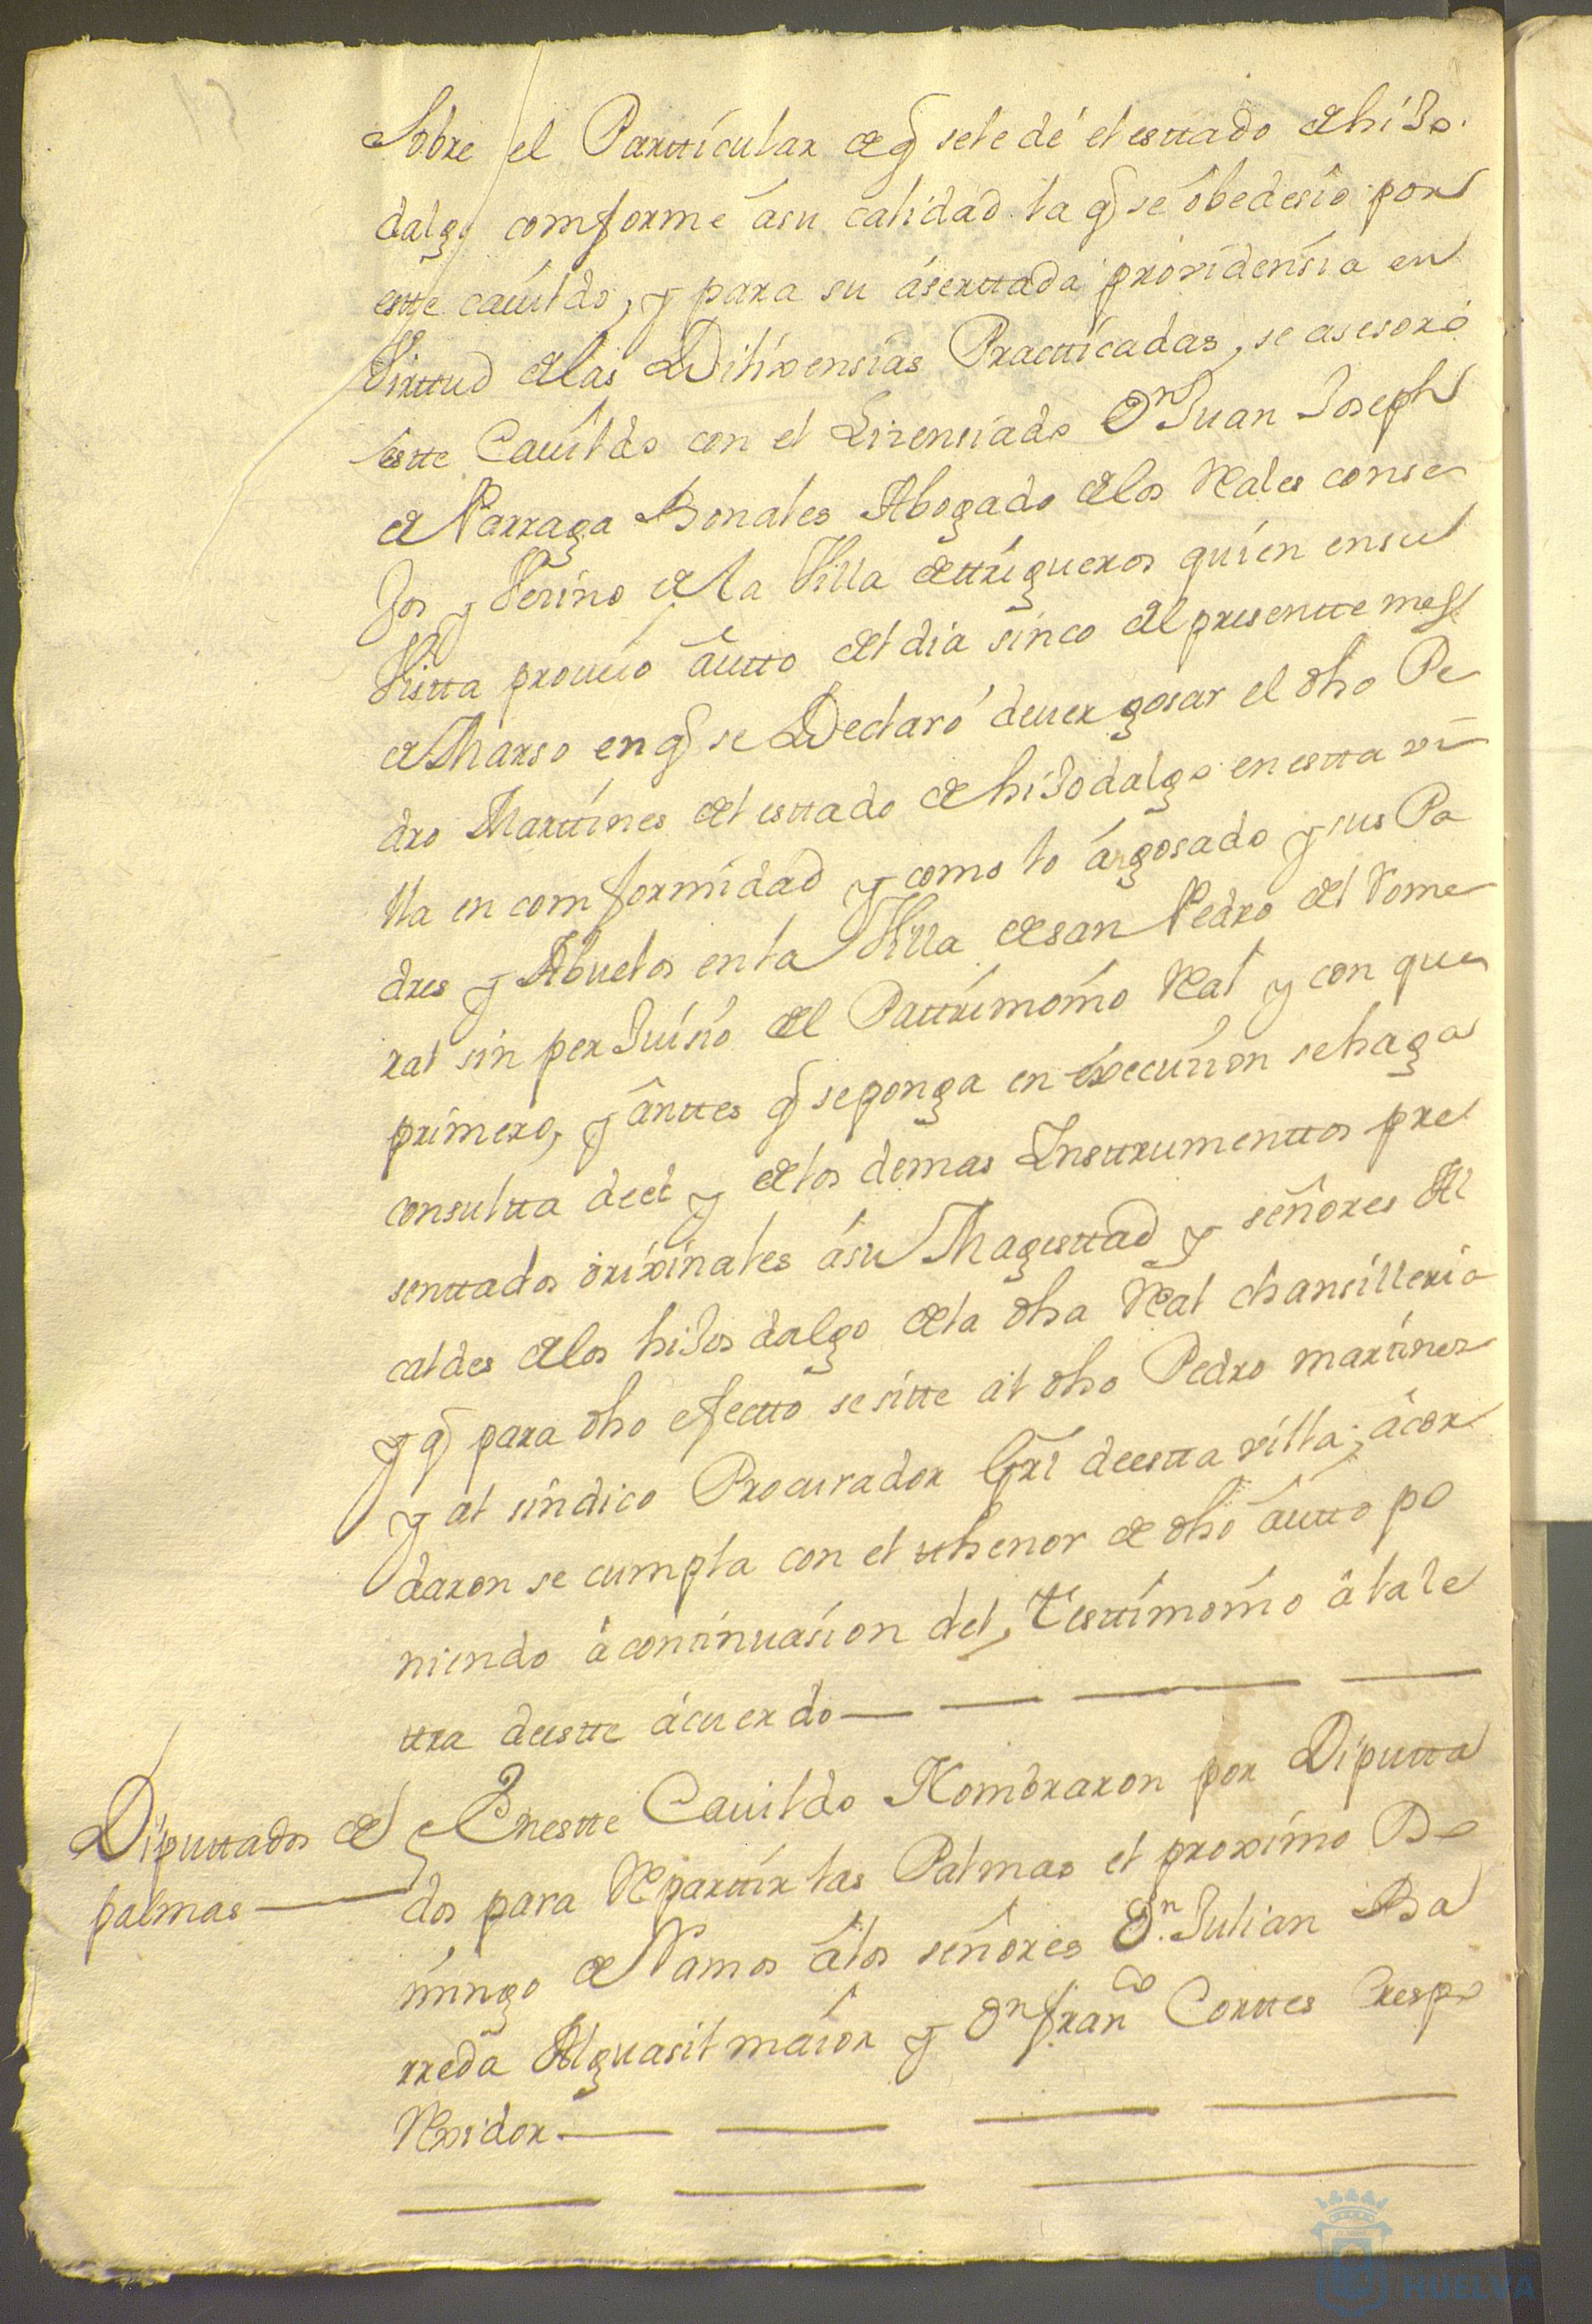 Sobre el Partticular de q̃ se le dé el esttado de hiJo
dalgo comforme ásu calidad. la q̃ se óbedesio por
estte cauíldo, y para su ásertтada providénsia en
Virttud de las Dilixensias Practticadas, se asesoró
estte Cauildo con el Lisensiado Dn Juan Joseph
de Parraga Bonales Abogado de los Rales conse
Jos y Vesino de la Villa de ttrigueros quien en su
Vistta proueio âutto del dia sinco del presentte mes
de Marso en q̃ se Declaró deuer gosar el dho Pe
dro Marttines del esttado de hiJodalgo en estta vi
lla en comformidad y como lo á gosado y sus Pa
dres y Abuelos en la Villa de san Pedro del Rome
ral sin perJuisio del Pattrimonio Ral y con que
primero, y ânttes q̃ se ponga en éxecusion se haga
consultta de el y de los demas Insttrumenttos pre
senttados órixinales ásu Magesttad y señores Al
caldes de los hiJos dalgo de la dha Ral chansilleria
y q̃ para dho efectto se sitte al dho Pedro marttines
y al sindico Procurador Grl de estta villa; âcor
daron se cumpla con el tthenor de dho âutto po
niendo á conttinuasion del, Testtimonio â la le
ttra de estte ácuerdo
Diputtados de
palmas
En estte Cauildo Nombraron por Diputta
dos para Reparttir las Palmas el proximo Do
mingo de Ramos â los señores Dn. Julian Ba
rreda Alguasil maior y Dn franco Corttes Crespo
Rexidor
HUELVA